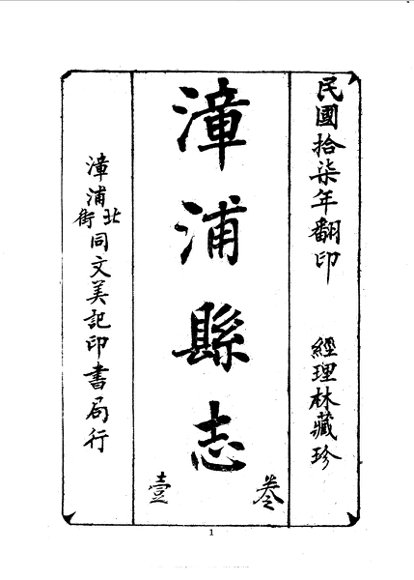 民國拾柒年翻印 經理林藏珍
漳浦縣志
卷壹
漳浦北街同文美記印書局行
1